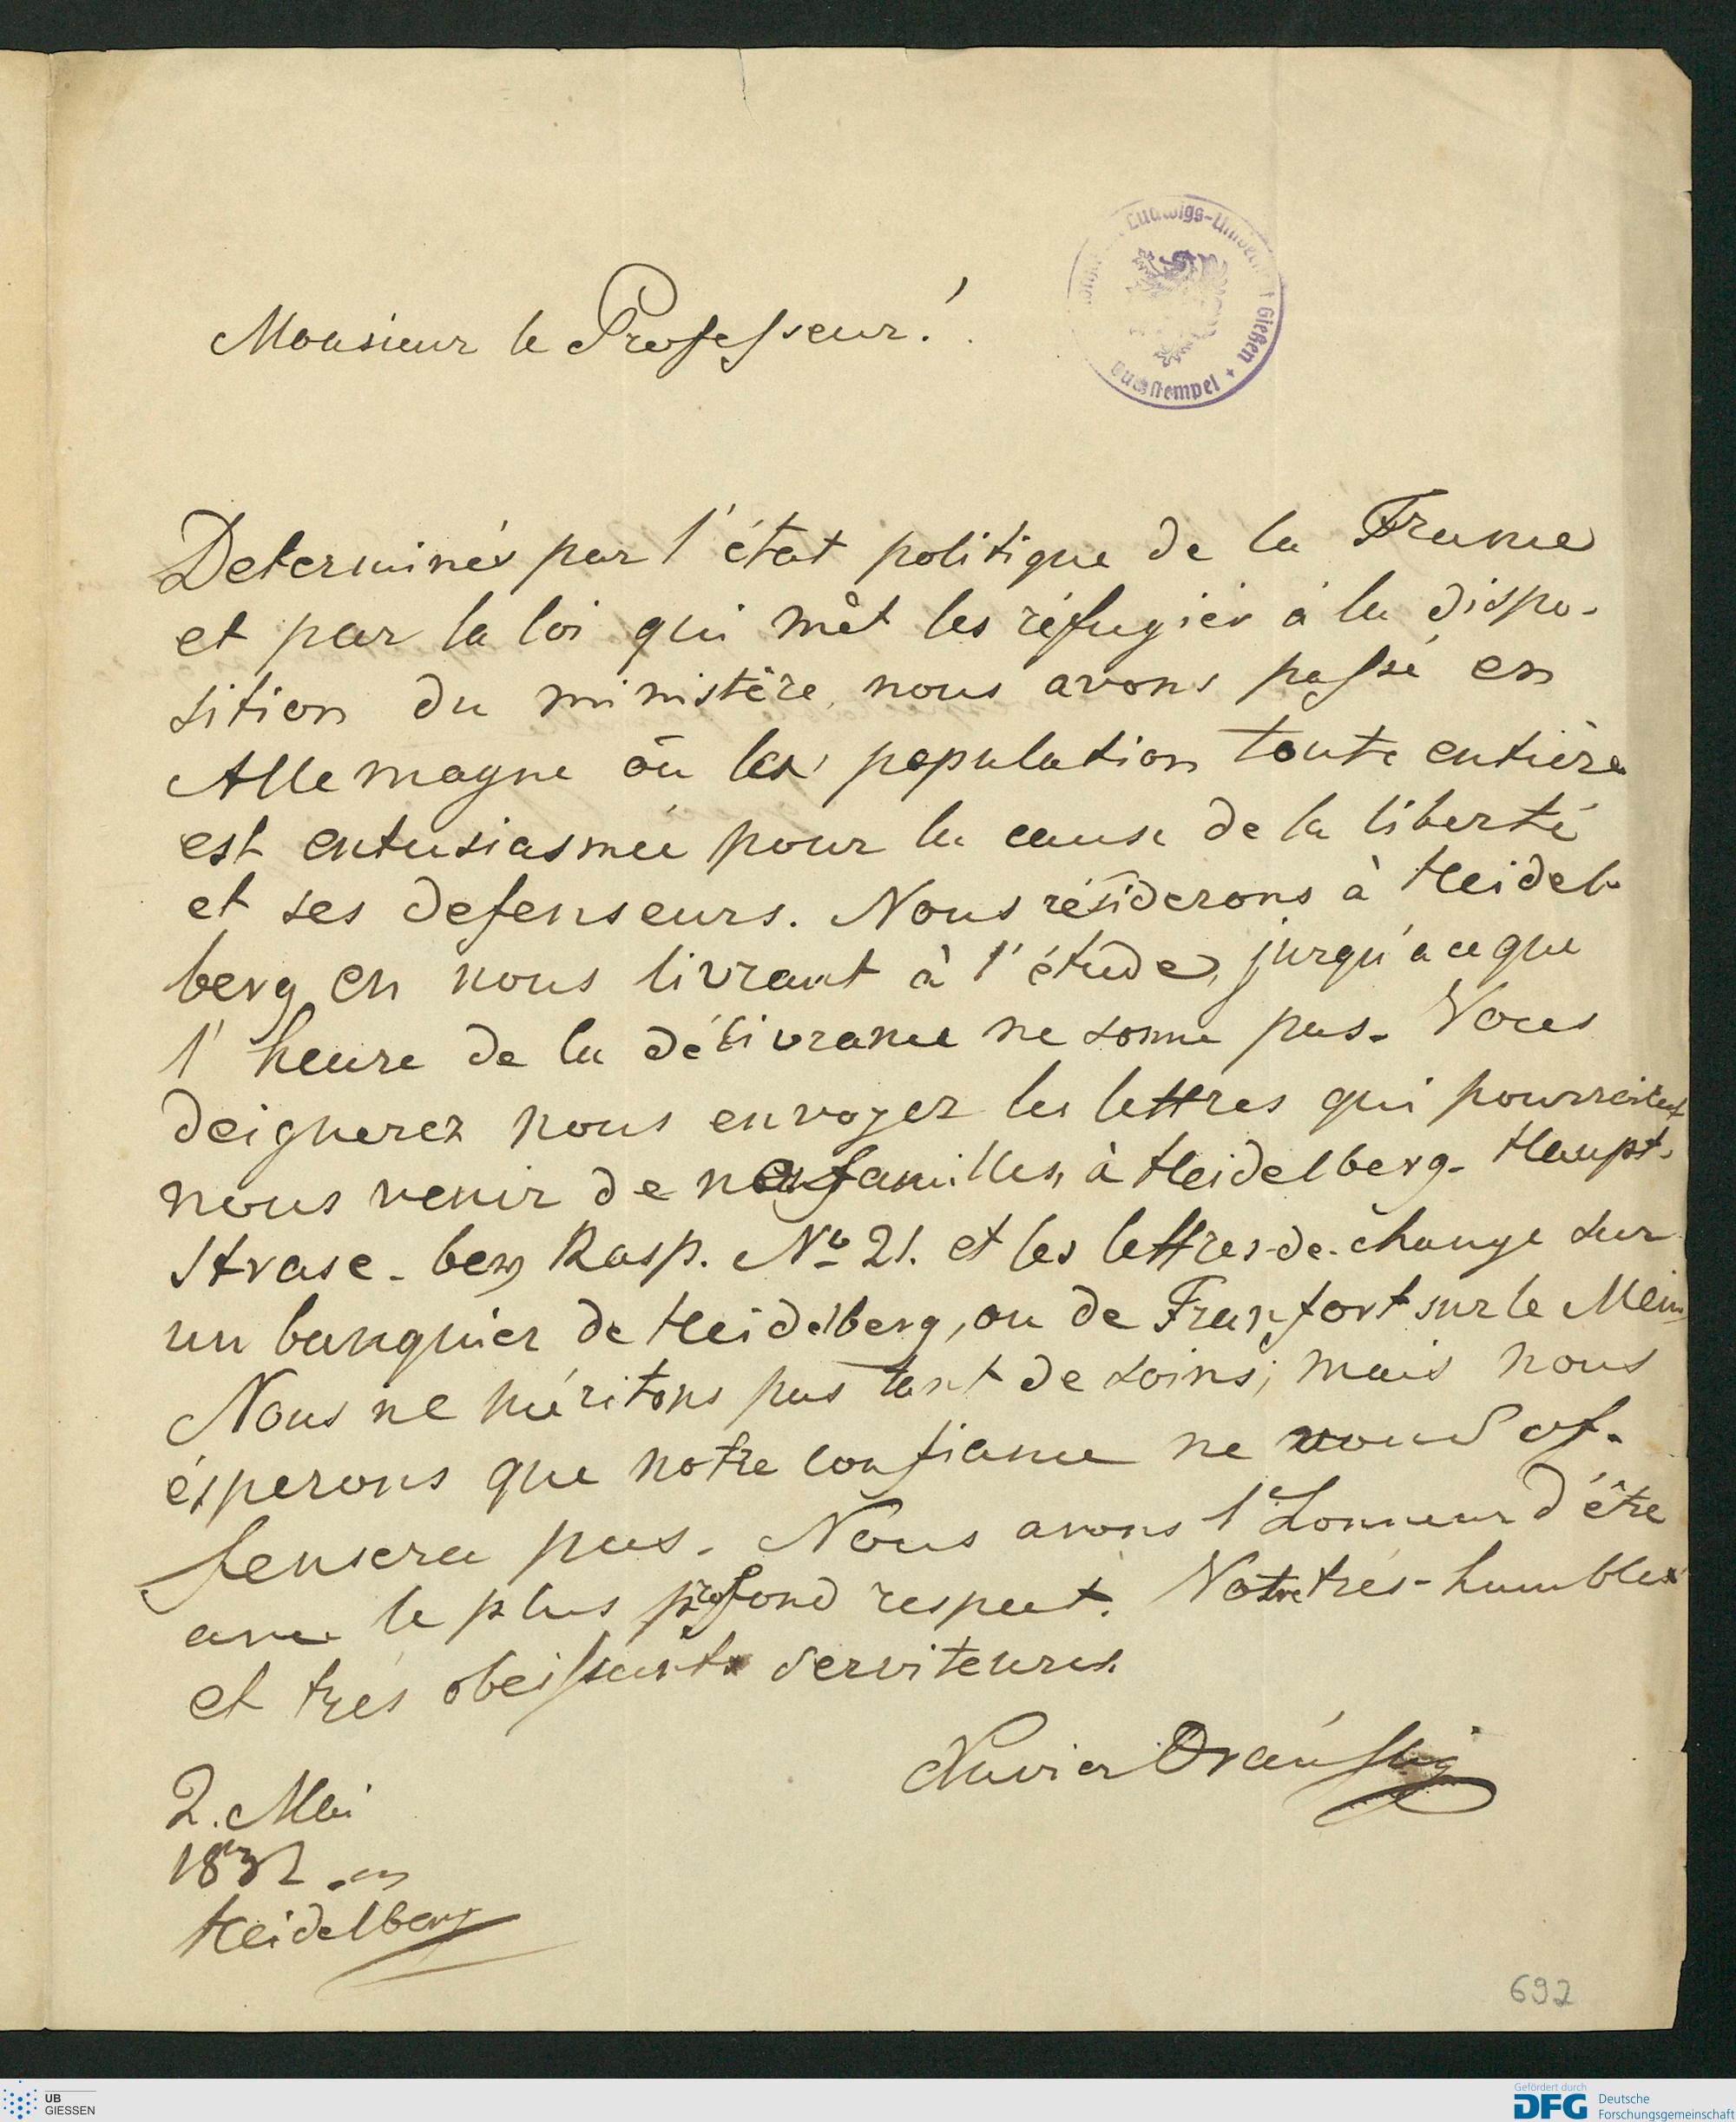 Ludwigs-Universität Gießen
Buchstempel
Monsieur le Professeur!
Determinés par l'état politique de la France
et par la loi qui mêt les réfugiés à la dispo-
sition du ministêre, nous avons passé en
Allemagne où la population toute entière
est entusiasmée pour la cause de la liberté
et ses defenseurs. Nous résiderons à Heidel-
berg en nous livrant à l'étude, jusqu'a ce que
l'heure de la délivrance ne sonne pas. Vous
deignerez nous envoyer les lettres qui pourraient
nous venir de nos familles, à Heidelberg. Haupt-
strase. bey Rasp. No 21. et les lettres-de-change sur
un banquier de Heidelberg, ou de Franfort sur le Mein
Nous ne méritons pas tant de soins; mais nous
ésperons que notre confiance ne vous of-
fensera pas. Nous avons l'honneur d'être
avec le plus profond respect. Votre très-humbles
et très obeissants serviteurs.
2. Mai
1832 en
Heidelberg
692
UB
GIESSEN
Gefördert durch
DFG Deutsche
Forschungsgemeinschaft